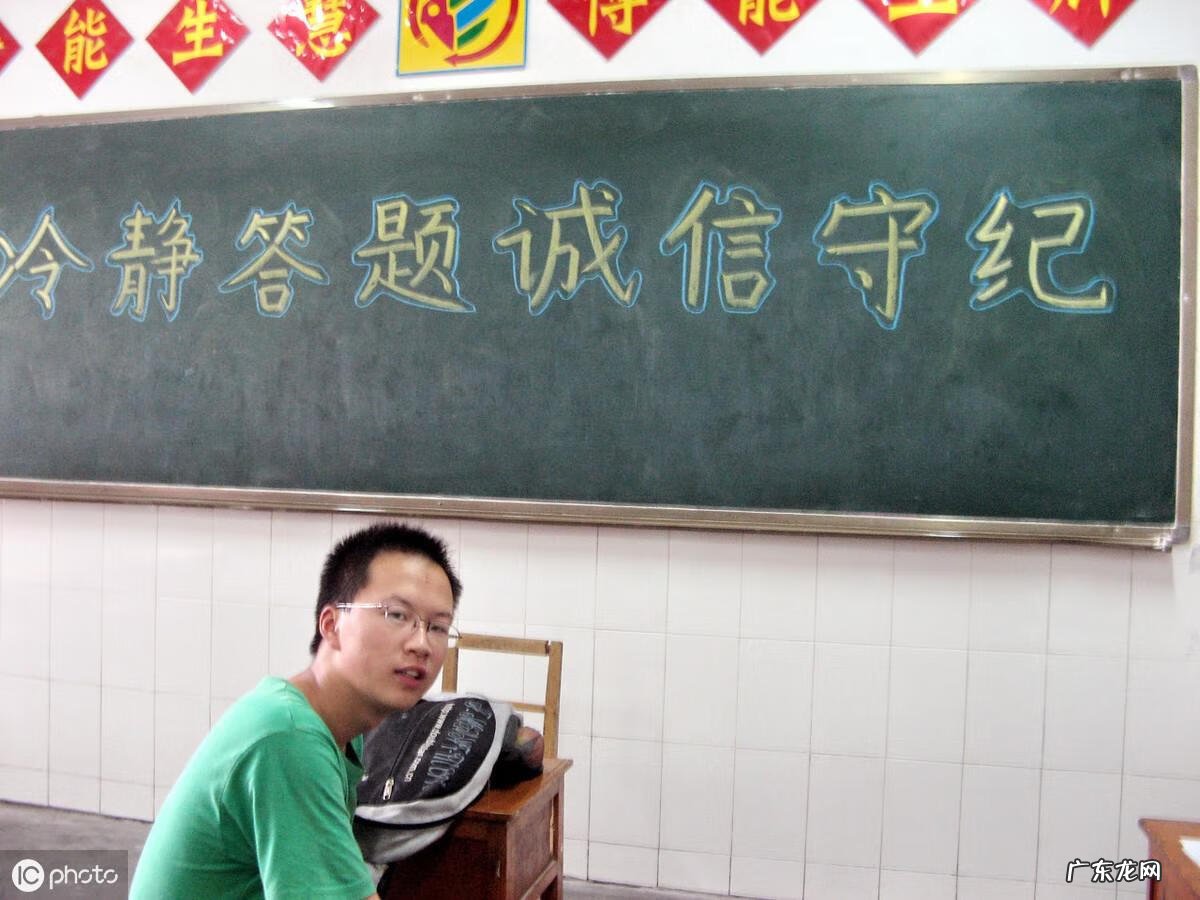 能生慧 得能生所
冷静答题诚信守纪
IC photo
广东龙网